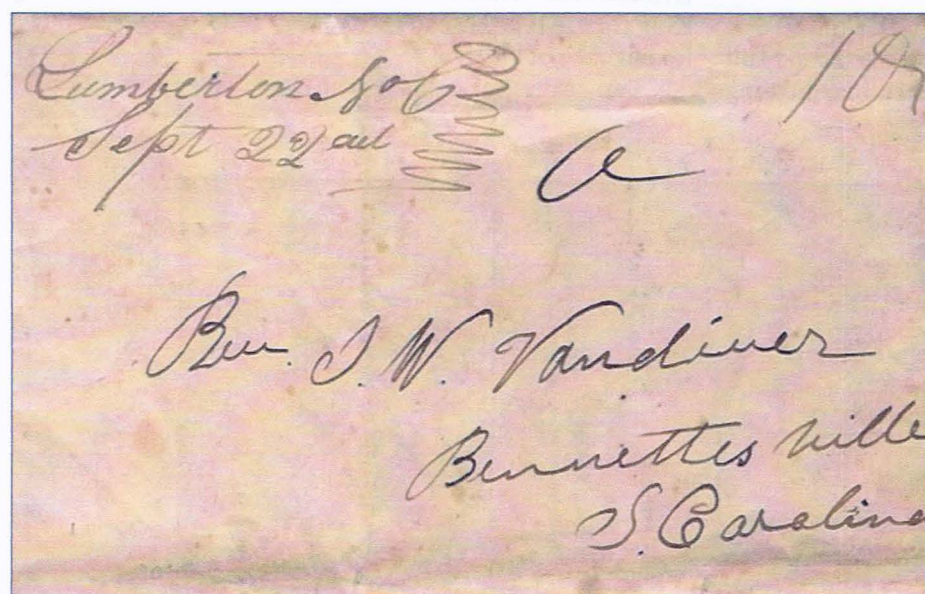 Lumberton No C
Sept 22nd
10
a
Rev. S. W. Vandiver
Bennettes ville
S. Carolina